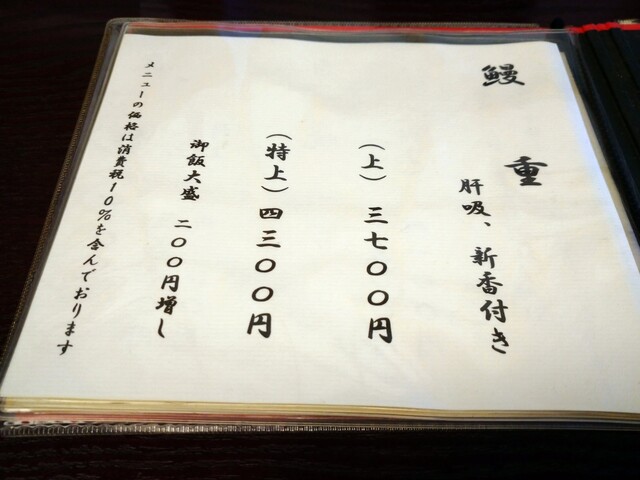 鰻重
肝吸、新香付き
(上)三七〇〇円
(特上)四三〇〇円
御飯大盛 二〇〇円増し
メニューの価格は消費税10%を含んでおります